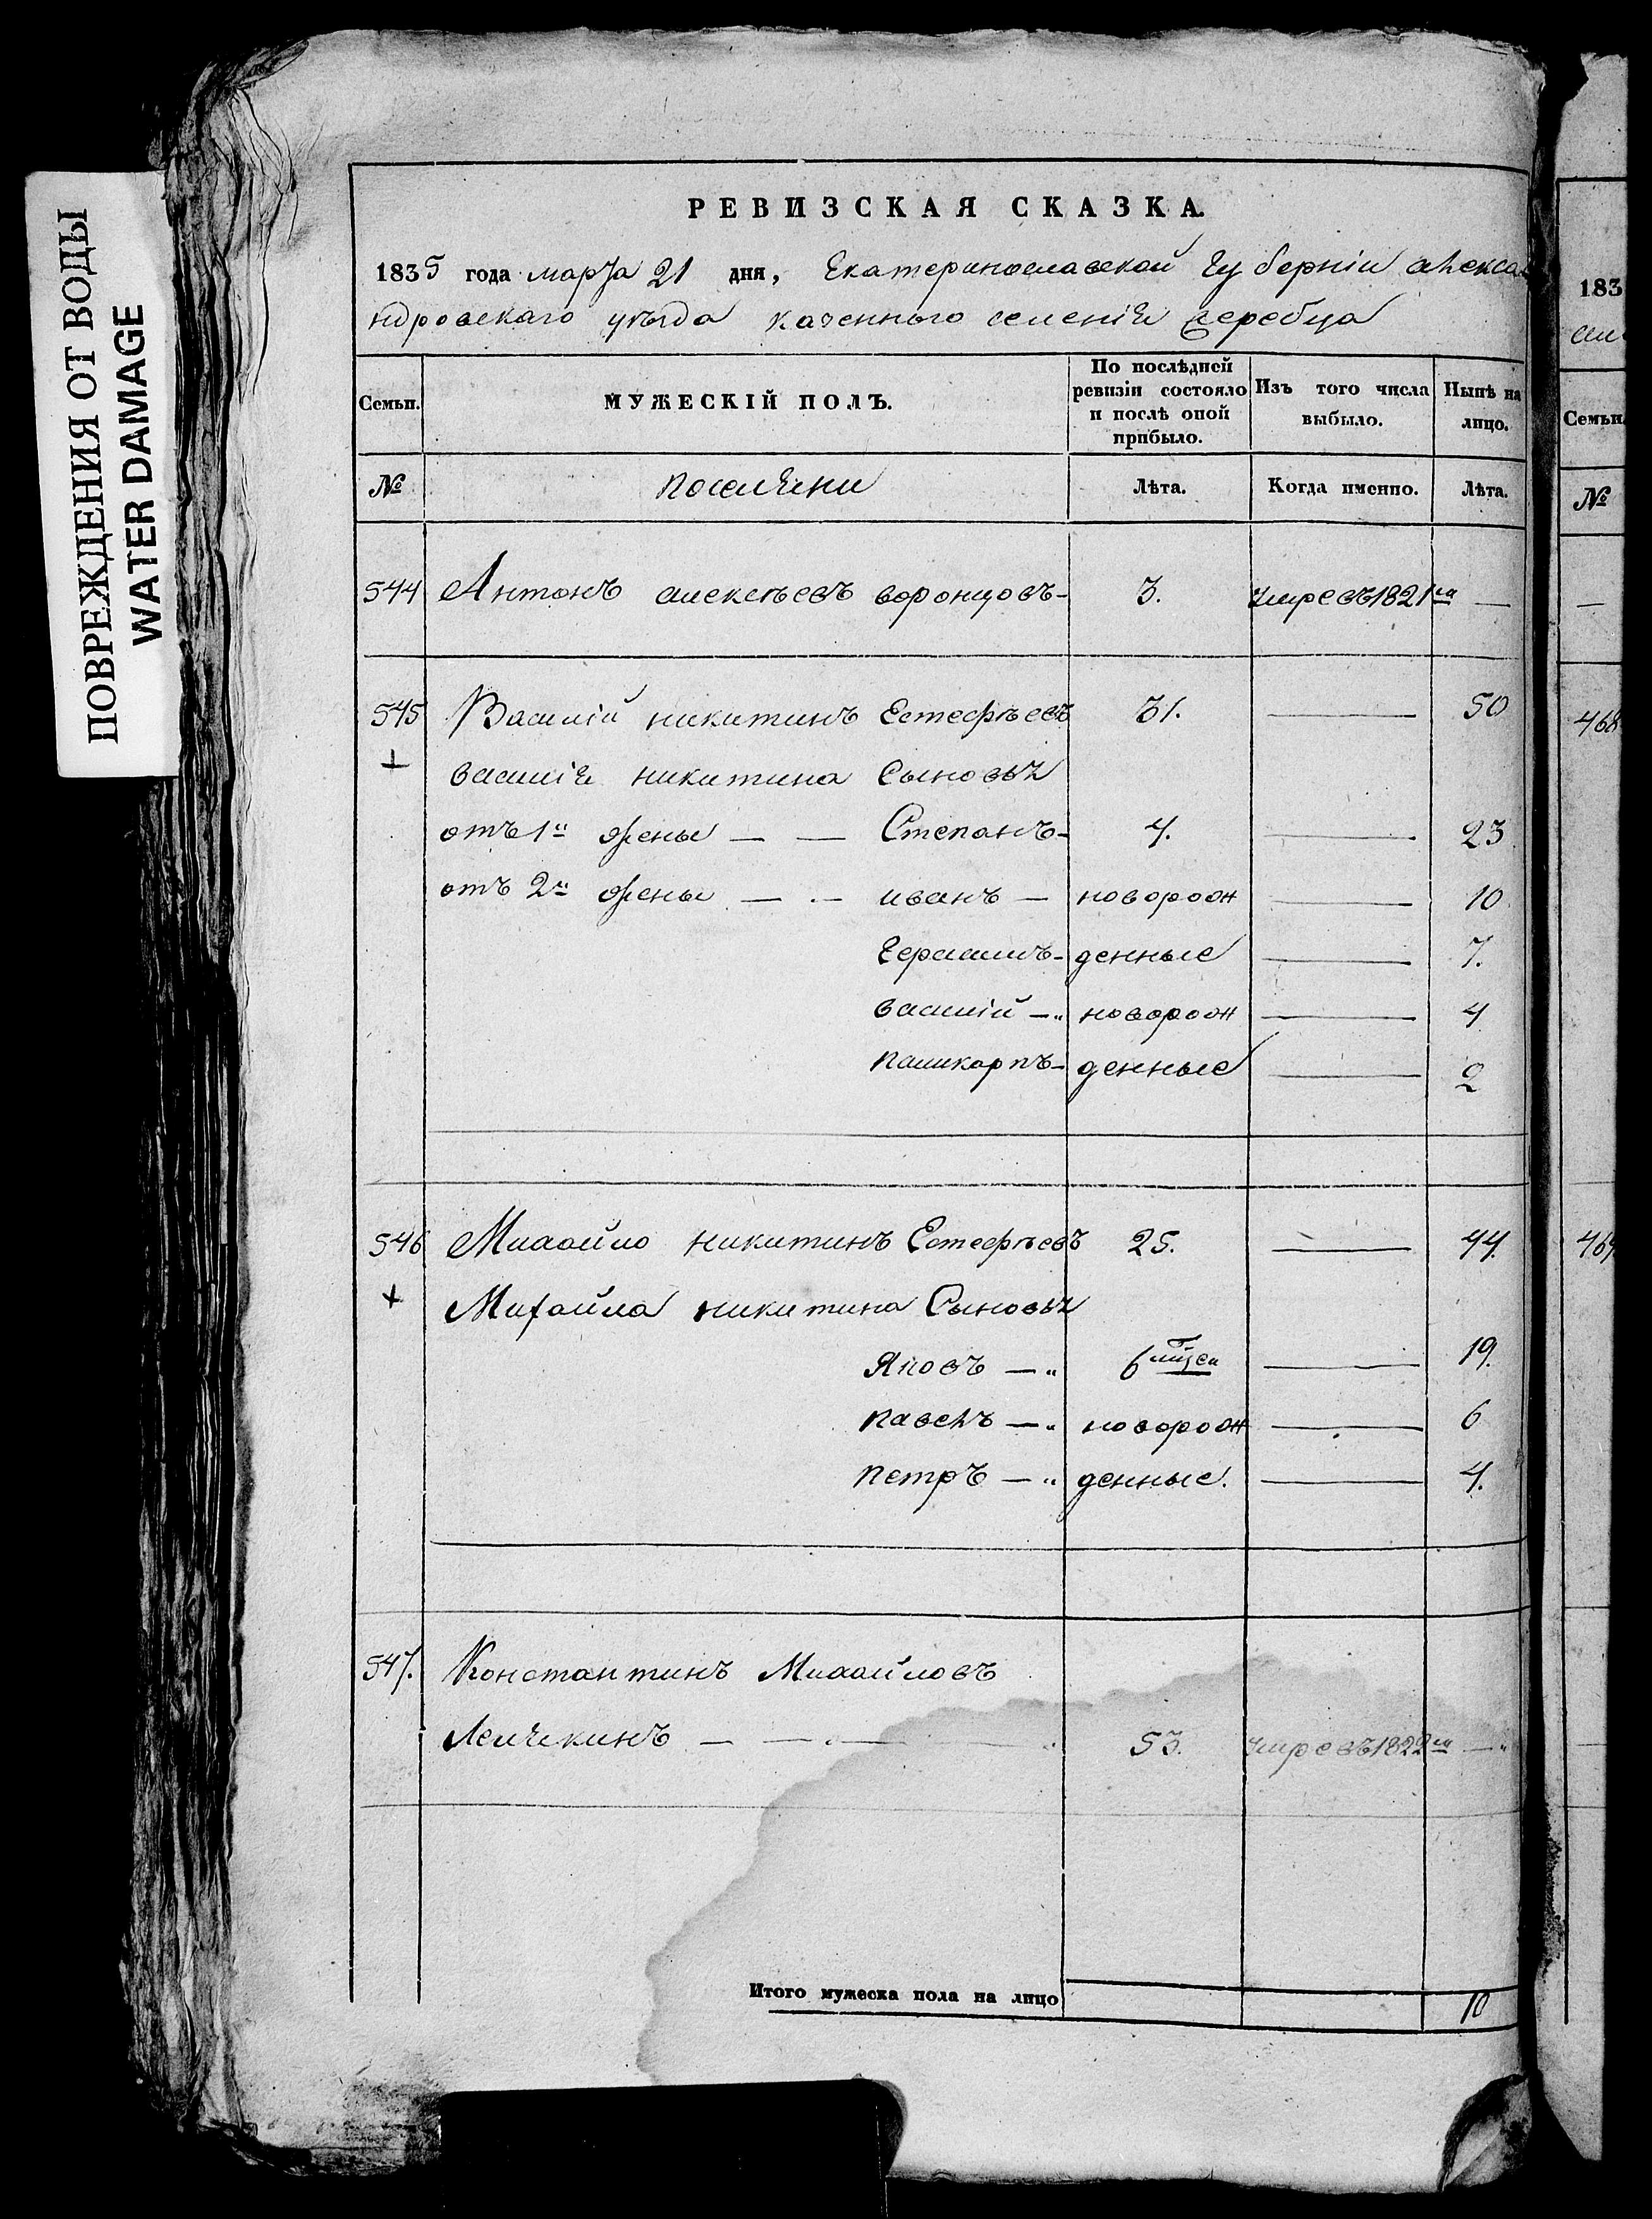 ПОВРЕЖДЕНИЯ ОТ ВОДЫ
WATER DAMAGE
РЕВИЗСКАЯ СКАЗКА.
1835 года марта 21 дня, Екатеринославской губерніи Алекса
ндровскаго уѣзда казенного селенія Серебца
Семьи. МУЖЕСКІЙ ПОЛЪ. По послѣдней ревизіи состояло и послѣ оной прибыло. Изъ того числа выбыло. Нынѣ на лицо.
№ поселяни Лѣта. Когда именно. Лѣта.
544 Антонъ алексѣевъ воронцовъ - 3. умре въ 1821м —
545 Василій никитинъ Естефѣевъ 31. — 50
+ василія никитина Сыновья
отъ 1й жены — — Степанъ - 4. — 23
отъ 2й жены — — иванъ — новорож — 10
герасимъ - денные — 7.
василій — новорож — 4
паликарпъ - денные — 2
546 Михайло никитинъ Естефѣевъ 25. — 44.
+ Михайла никитина Сыновья
Яковъ — 6 мѣся — 19.
павелъ — новорож — 6
петръ — денные. — 4.
547. Константинъ Михайловъ
— — 53. умре въ 1822м —
Итого мужеска пола на лицо 10
183
Семьи
№
—
468
469